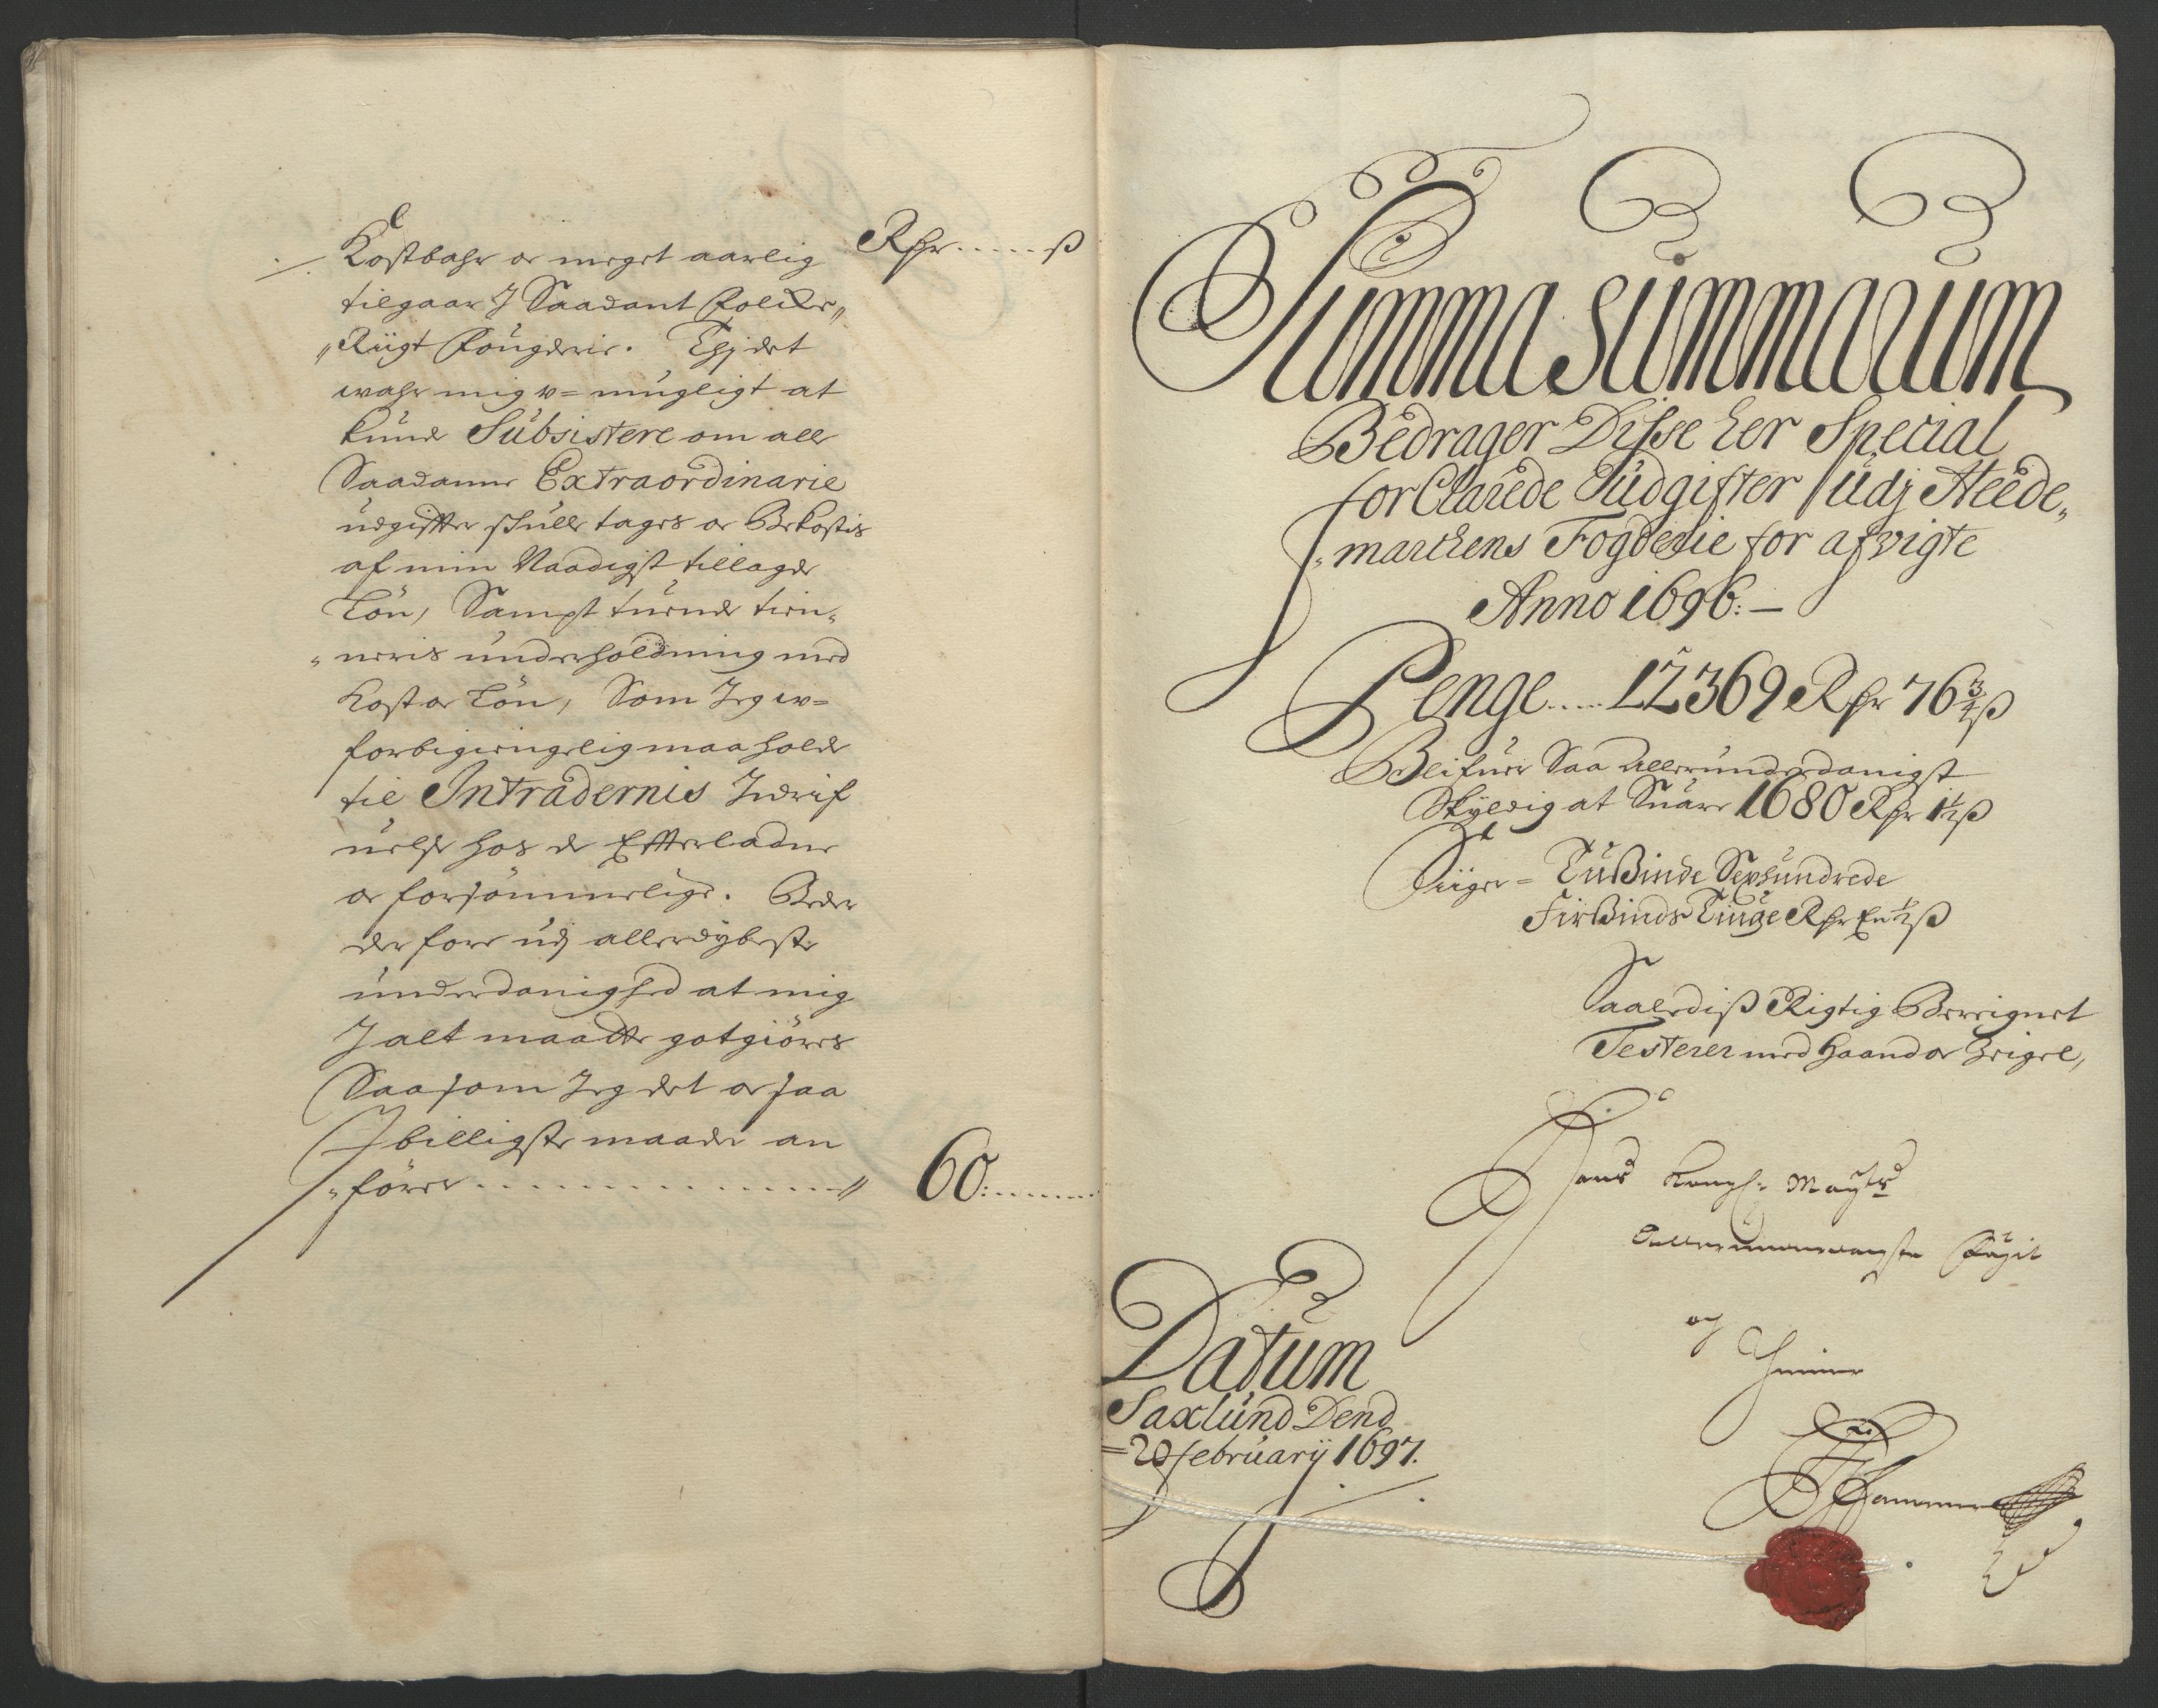 Kostbahr oc meget aarlig Rdr ..... ß
tilgaar J Saadant Folche„
„Riigt Fougderie. Thj det
wahr mig u=mügligt at
kunde Subsistere om alle
Saadanne Extraordinarie
udgiffter skulle tages oc Bekostis
af min Naadigst tillagde
Lön, Sampt tuende tien„
„neris underholdning med
Kost oc Lön, Som Jeg uv=
forbigiengelig maa holde
til Intradernis Jndrif
uelse hos de Efterladne
oc forsömmelige. Beder
der fore udj allerdybeste
underdanighed at mig
J alt maatte gotgiöres
Saa som Jeg det oc saa
J billigste maade an
„förer ............ 60: .......
Summa Summarum
Bedrager Disse her Special
for Clarede Uudgifter udj Heede„
„marckens Fogderie for afvigte
Anno 1696: —
Penge ..... 12369 Rdr 76 3/4 ß
Blifuer Saa Allerunderdanigst
Skyldig at Suare 1680 Rdr 1 1/2 ß
Siiger = Tußinde Sexhundrede
Firßinds Tiuge Rdr En 1/2 ß
Saaledis Rigtig Bereignet
Testerer med Haand oc Zeigel,
Hans Kongl: Mayts
Allerunderdanigste Fogit
og Thiener
Datum
Saxlund Dend
=20 february 1697.